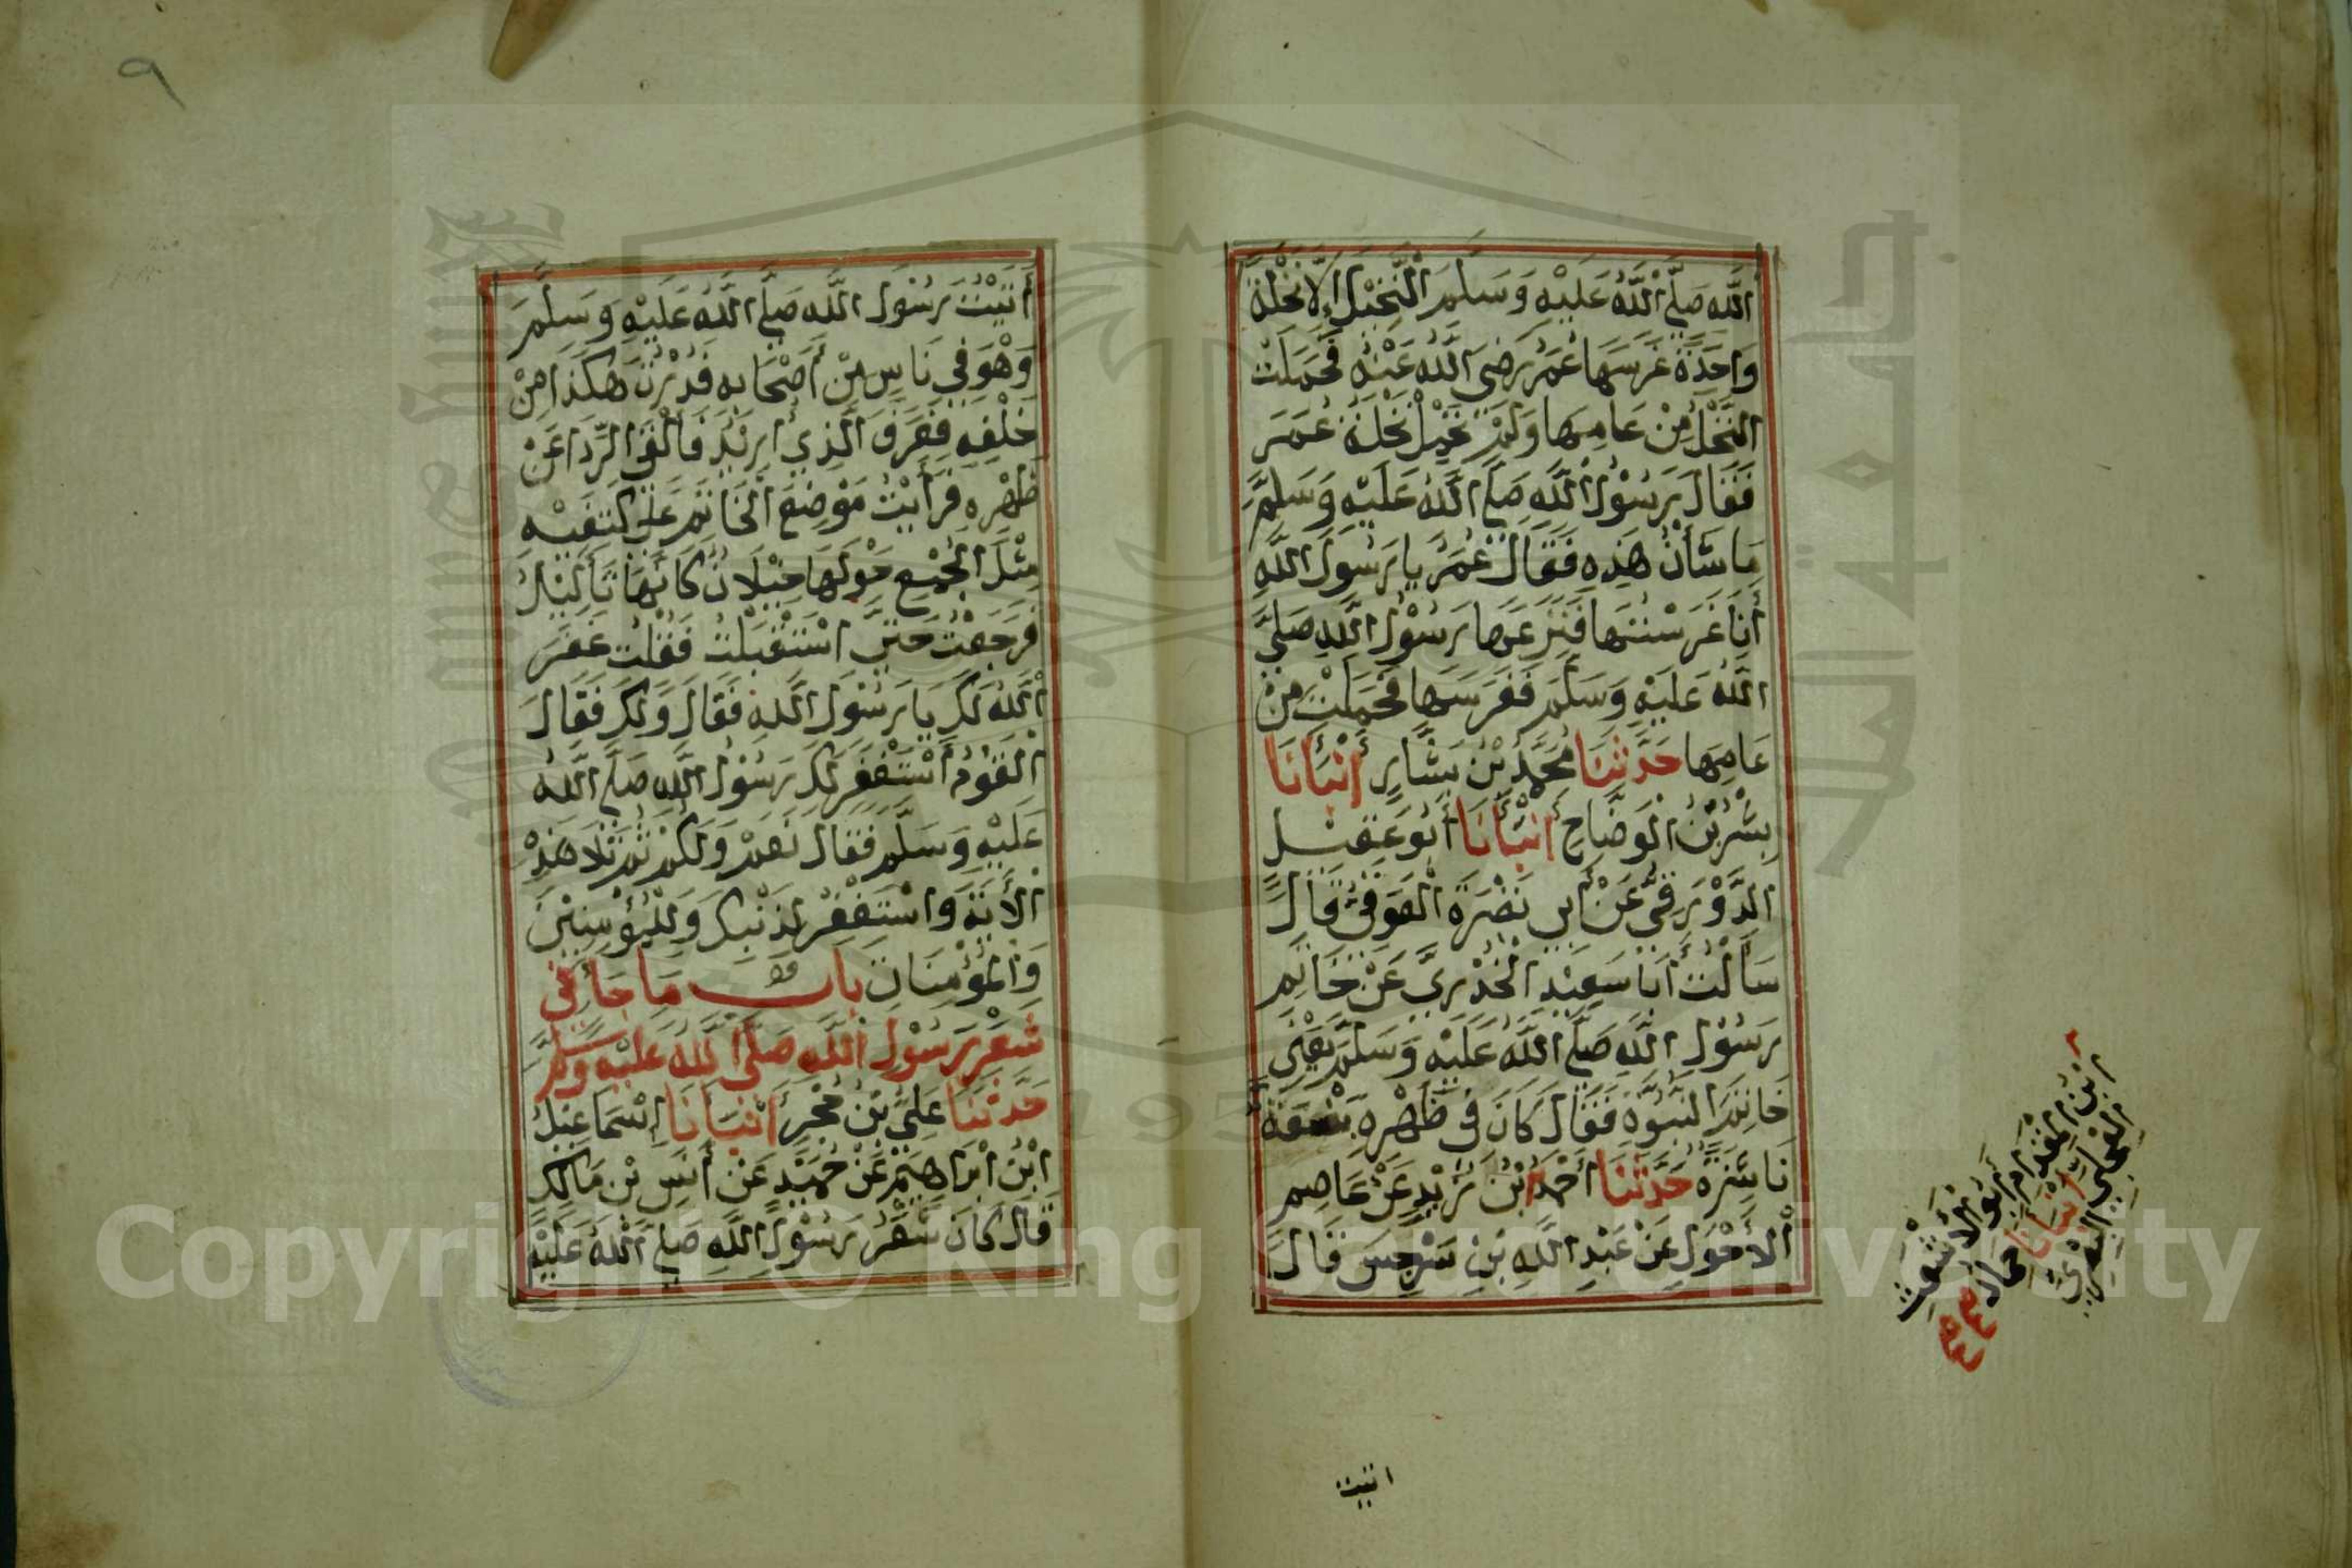 اللَّهِ صَلَّى اللَّهُ عَلَيْهِ وَسَلَّمَ النَّخِيْلَ إِلَّا نَخْلَةً
وَاحِدَةً غَرَسَهَا عُمَرُ رَضِيَ اللَّهُ عَنْهُ فَحَمَلَتْ
النَّخْلُ مِنْ عَامِهَا وَلَمْ تَحْمِلْ نَخْلَةُ عُمَرَ
فَقَالَ رَسُوْلُ اللَّهِ صَلَّى اللَّهُ عَلَيْهِ وَسَلَّمَ
مَا شَأْنُ هَذِهِ فَقَالَ عُمَرُ يَا رَسُوْلَ اللَّهِ
أَنَا غَرَسْتُهَا فَنَزَعَهَا رَسُوْلُ اللَّهِ صَلَّى
اللَّهُ عَلَيْهِ وَسَلَّمَ فَغَرَسَهَا فَحَمَلَتْ مِنْ
عَامِهَا حَدَّثَنَا مُحَمَّدُ بْنُ بَشَّارٍ أَنْبَأَنَا
بِشْرُ بْنُ الْوَضَّاحِ أَنْبَأَنَا أَبُو عَقِيْلٍ
الدَّوْرَقِيُّ عَنْ أَبِي نَضْرَةَ الْعَوَقِيِّ قَالَ
سَأَلْتُ أَبَا سَعِيْدٍ الْخُدْرِيَّ عَنْ خَاتَمِ
رَسُوْلِ اللَّهِ صَلَّى اللَّهُ عَلَيْهِ وَسَلَّمَ يَعْنِى
خَاتَمَ النُّبُوَّةِ فَقَالَ كَانَ فِى ظَهْرِهِ بَضْعَةٌ
نَاشِزَةٌ حَدَّثَنَا أَحْمَدُ ابْنُ
عَنْ عَاصِمٍ
الْأَحْوَلِ عَنْ عَبْدِ اللَّهِ بْنِ سَرْجِسَ قَالَ
ابْنُ الْمِقْدَامِ أَبُو الْأَشْعَثِ
الْعِجْلِيُّ الْبَصْرِيُّ
أَنْبَأَنَا حماد
اتيت
٩
أَتَيْتُ رَسُوْلَ اللَّهِ صَلَّى اللَّهُ عَلَيْهِ وَسَلَّمَ
وَهُوَ فِي نَاسٍ مِنْ أَصْحَابِهِ فَدُرْتُ هَكَذَا مِنْ
خَلْفِهِ فَعَرَفَ الَّذِي أُرِيْدُ فَأَلْقَى الرِّدَا عَنْ
ظَهْرِهِ فَرَأَيْتُ مَوْضِعَ الْخَاتَمِ عَلَى كَتِفَيْهِ
مِثْلَ الْجُمْعِ حَوْلَهَا خِيْلَانٌ كَأَنَّهَا ثَآلِيْلُ
فَرَجَعْتُ حَتَّى اسْتَقْبَلْتُهُ فَقُلْتُ غَفَرَ
اللَّهُ لَكَ يَا رَسُوْلَ اللَّهِ فَقَالَ وَلَكَ فَقَالَ
الْقَوْمُ أَسْتَغْفَرَ لَكَ رَسُوْلُ اللَّهِ صَلَّى اللَّهُ
عَلَيْهِ وَسَلَّمَ فَقَالَ نَعَمْ وَلَكُمْ ثُمَّ تَلَا هَذِهِ
الْأَيَةَ وَاسْتَغْفِرْ لِذَنْبِكَ وَلِلْمُؤْمِنِيْنَ
وَالْمُؤْمِنَاتِ بَابُ مَا جَاءَ فِى
شَعْرِ رَسُوْلِ اللَّهِ صَلَّى اللَّهُ عَلَيْهِ وَسَلَّمَ
حَدَّثَنَا عَلِيُّ بْنُ حُجْرٍ أَنْبَأَنَا إِسْمَاعِيْلُ
ابْنُ ابْرَاهِيْمَ عَنْ حُمَيْدٍ عَنْ أَنَسِ بْنِ مَالِكٍ
قَالَ كَانَ شَعْرُ رَسُوْلِ اللَّهِ صَلَّى اللَّهُ عَلَيْهِ
Copyright © King Saud University